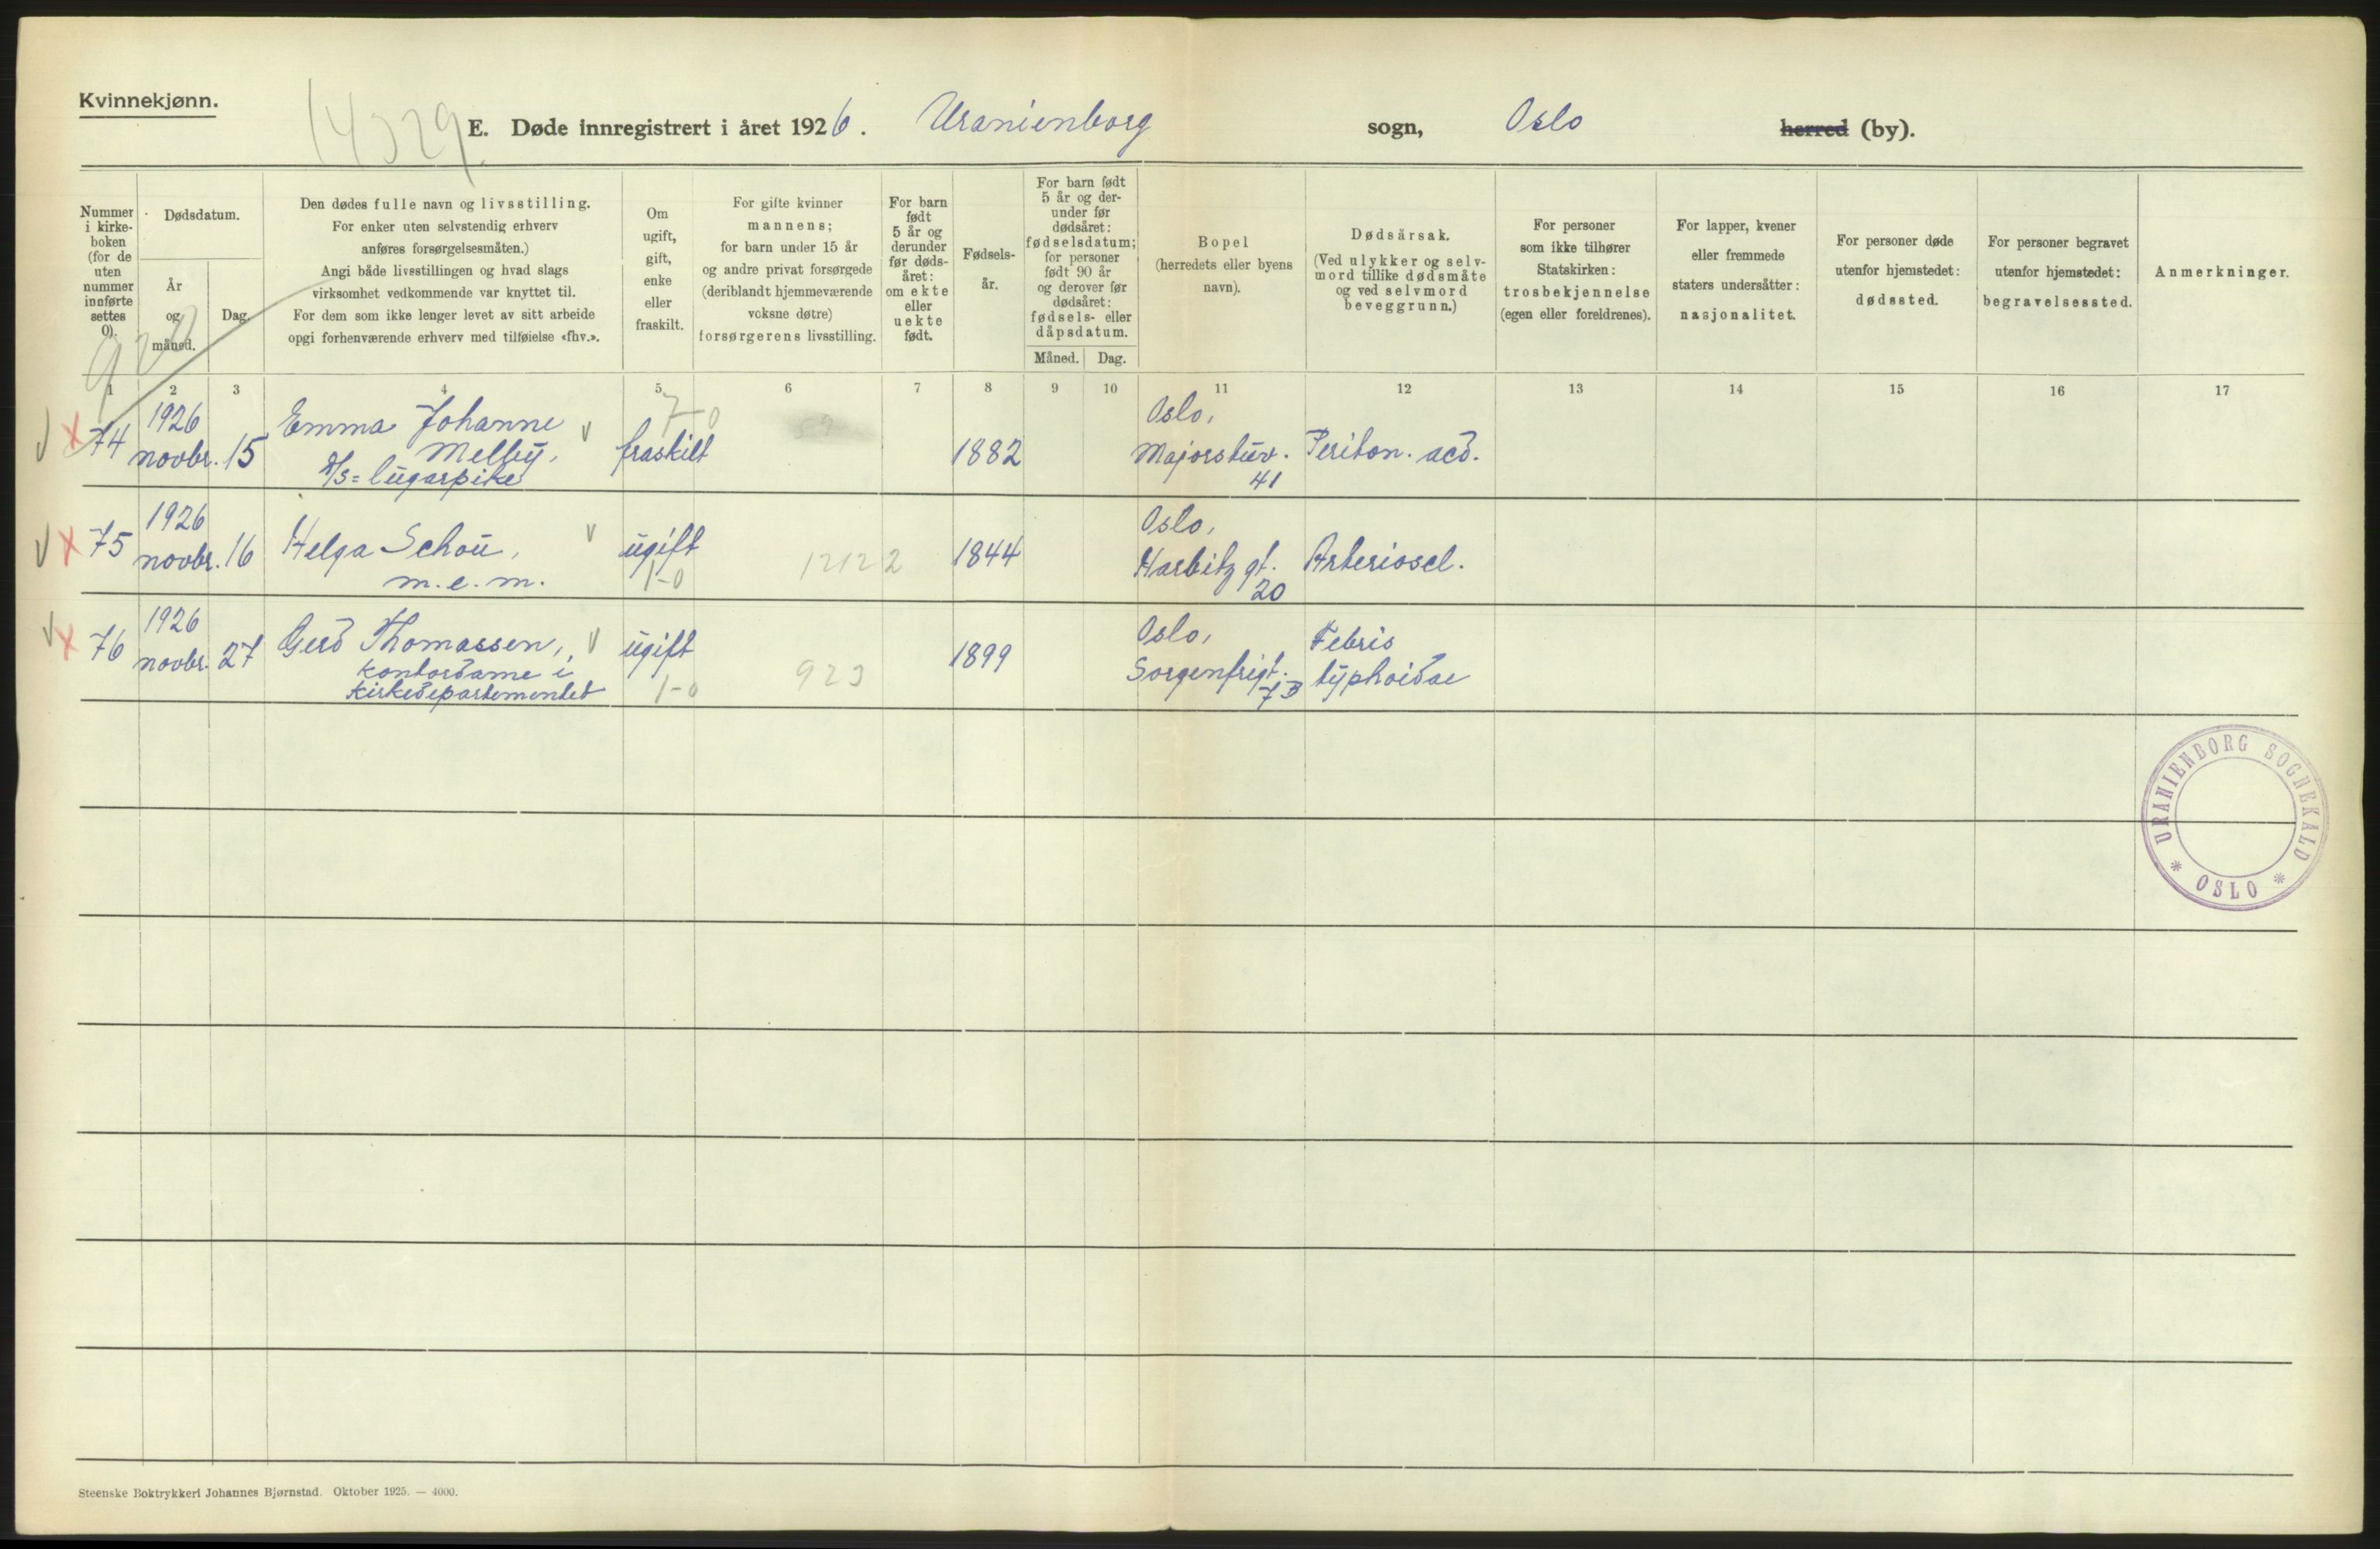 Kvinnekjønn.
14329
E. Døde innregistrert i året 1926. Uranienborg sogn, Oslo herred (by).
Nummer
i kirke-
boken
(for de
uten
nummer
innførte
settes
0).
Dødsdatum.
År
og
måned.
Dag.
Den dødes fulle navn og livsstilling.
For enker uten selvstendig erhverv
anføres forsørgelsesmåten.)
Angi både livsstillingen og hvad slags
virksomhet vedkommende var knyttet til.
For dem som ikke lenger levet av sitt arbeide
opgi forhenværende erhverv med tilføielse «fhv.».
Om
ugift,
gift,
enke
eller
fraskilt.
For gifte kvinner
mannens;
for barn under 15 år
og andre privat forsørgede
(deriblandt hjemmeværende
voksne døtre)
forsørgerens livsstilling.
For barn
født
5 år og
derunder
før døds-
året:
om ekte
eller
uekte
født.
Fødsels-
år.
For barn født
5 år og der-
under før
dødsåret:
fødselsdatum;
for personer
født 90 år
og derover før
dødsåret:
fødsels- eller
dåpsdatum.
Måned. Dag.
Bopel
(herredets eller byens
navn).
Dødsårsak.
(Ved ulykker og selv-
mord tillike dødsmåte
og ved selvmord
beveggrunn.)
For personer
som ikke tilhører
Statskirken:
trosbekjennelse
(egen eller foreldrenes).
For lapper, kvener
eller fremmede
staters undersåtter:
nasjonalitet.
For personer døde
utenfor hjemstedet:
dødssted.
For personer begravet
utenfor hjemstedet:
begravelsessted.
Anmerkninger.
1 2 3 4 5 6 7 8 9 10 11 12 13 14 15 16 17
74 1926 novbr. 15
Emma Johanne
Melby,
d/s= lugarpike
fraskilt
7-0
1882
Oslo,
Majorstuv.
41
Periton. acd.
75 1926 novbr. 16
Helga Schou,
m. e. m.
ugift
1-0
12122
1844
Oslo,
Harbitz gt.
20
Arterioscl.
76 1926 novbr. 27
Gerd Thomassen,
kontordame i
kirkedepartementet
ugift
1-0
923
1899
Oslo,
Sorgenfrigt.
7B
Febris
typhoidae
URANIENBORG SOGNEKALD
* OSLO *
Steenske Boktrykkeri Johannes Bjørnstad. Oktober 1925. — 4000.